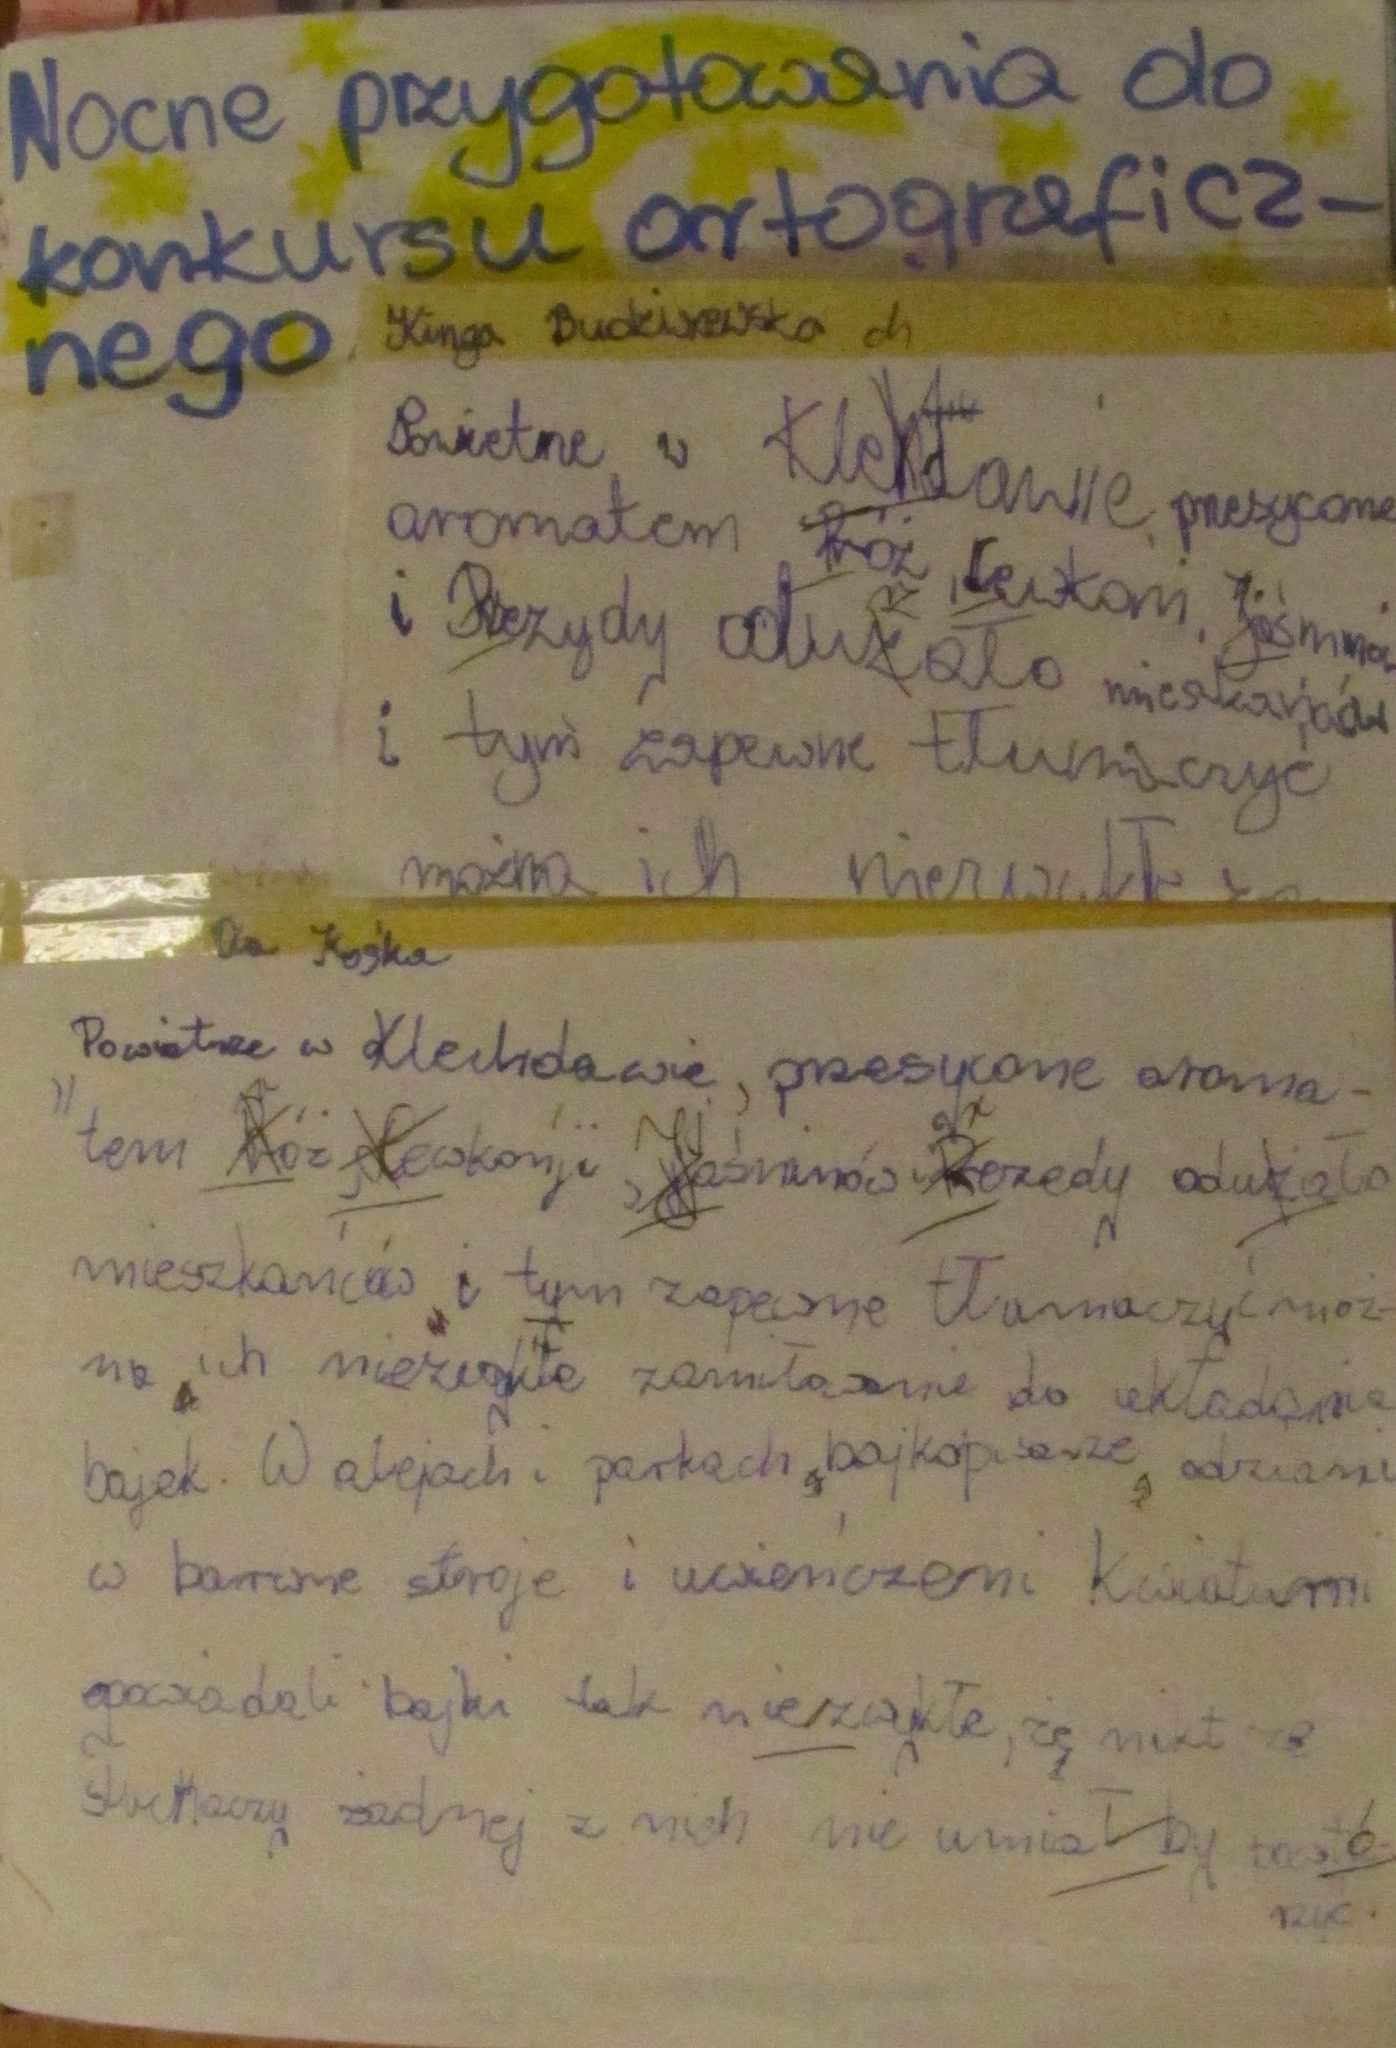 Nocne przygotowania do
konkursu ortograficz-
nego
Kinga
Powietrze w Klechdawie, przesycone
aromatem róż, lewkoni, jaśminó
i Rezydy odurzało mieszkańców
i tym zapewne tłumaczyć
można ich niezwykłe za
Ola Kośka
Powietrze w Klechdawie, przesycone aroma-
tem Róż, Lewkonji, Jaśminów i Rezedy odużało
mieszkańców i tym zapewne tłumaczyć moż-
na ich niezwykłe zamiłowanie do układania
bajek. W alejach i parkach, bajkopisarze, odziani
w barwne stroje i uwieńczeni kwiatami
opowiadali bajki tak niezwykłe, że nikt ze
słuchaczy żadnej z nich nie umiał by powtó-
rzyć.